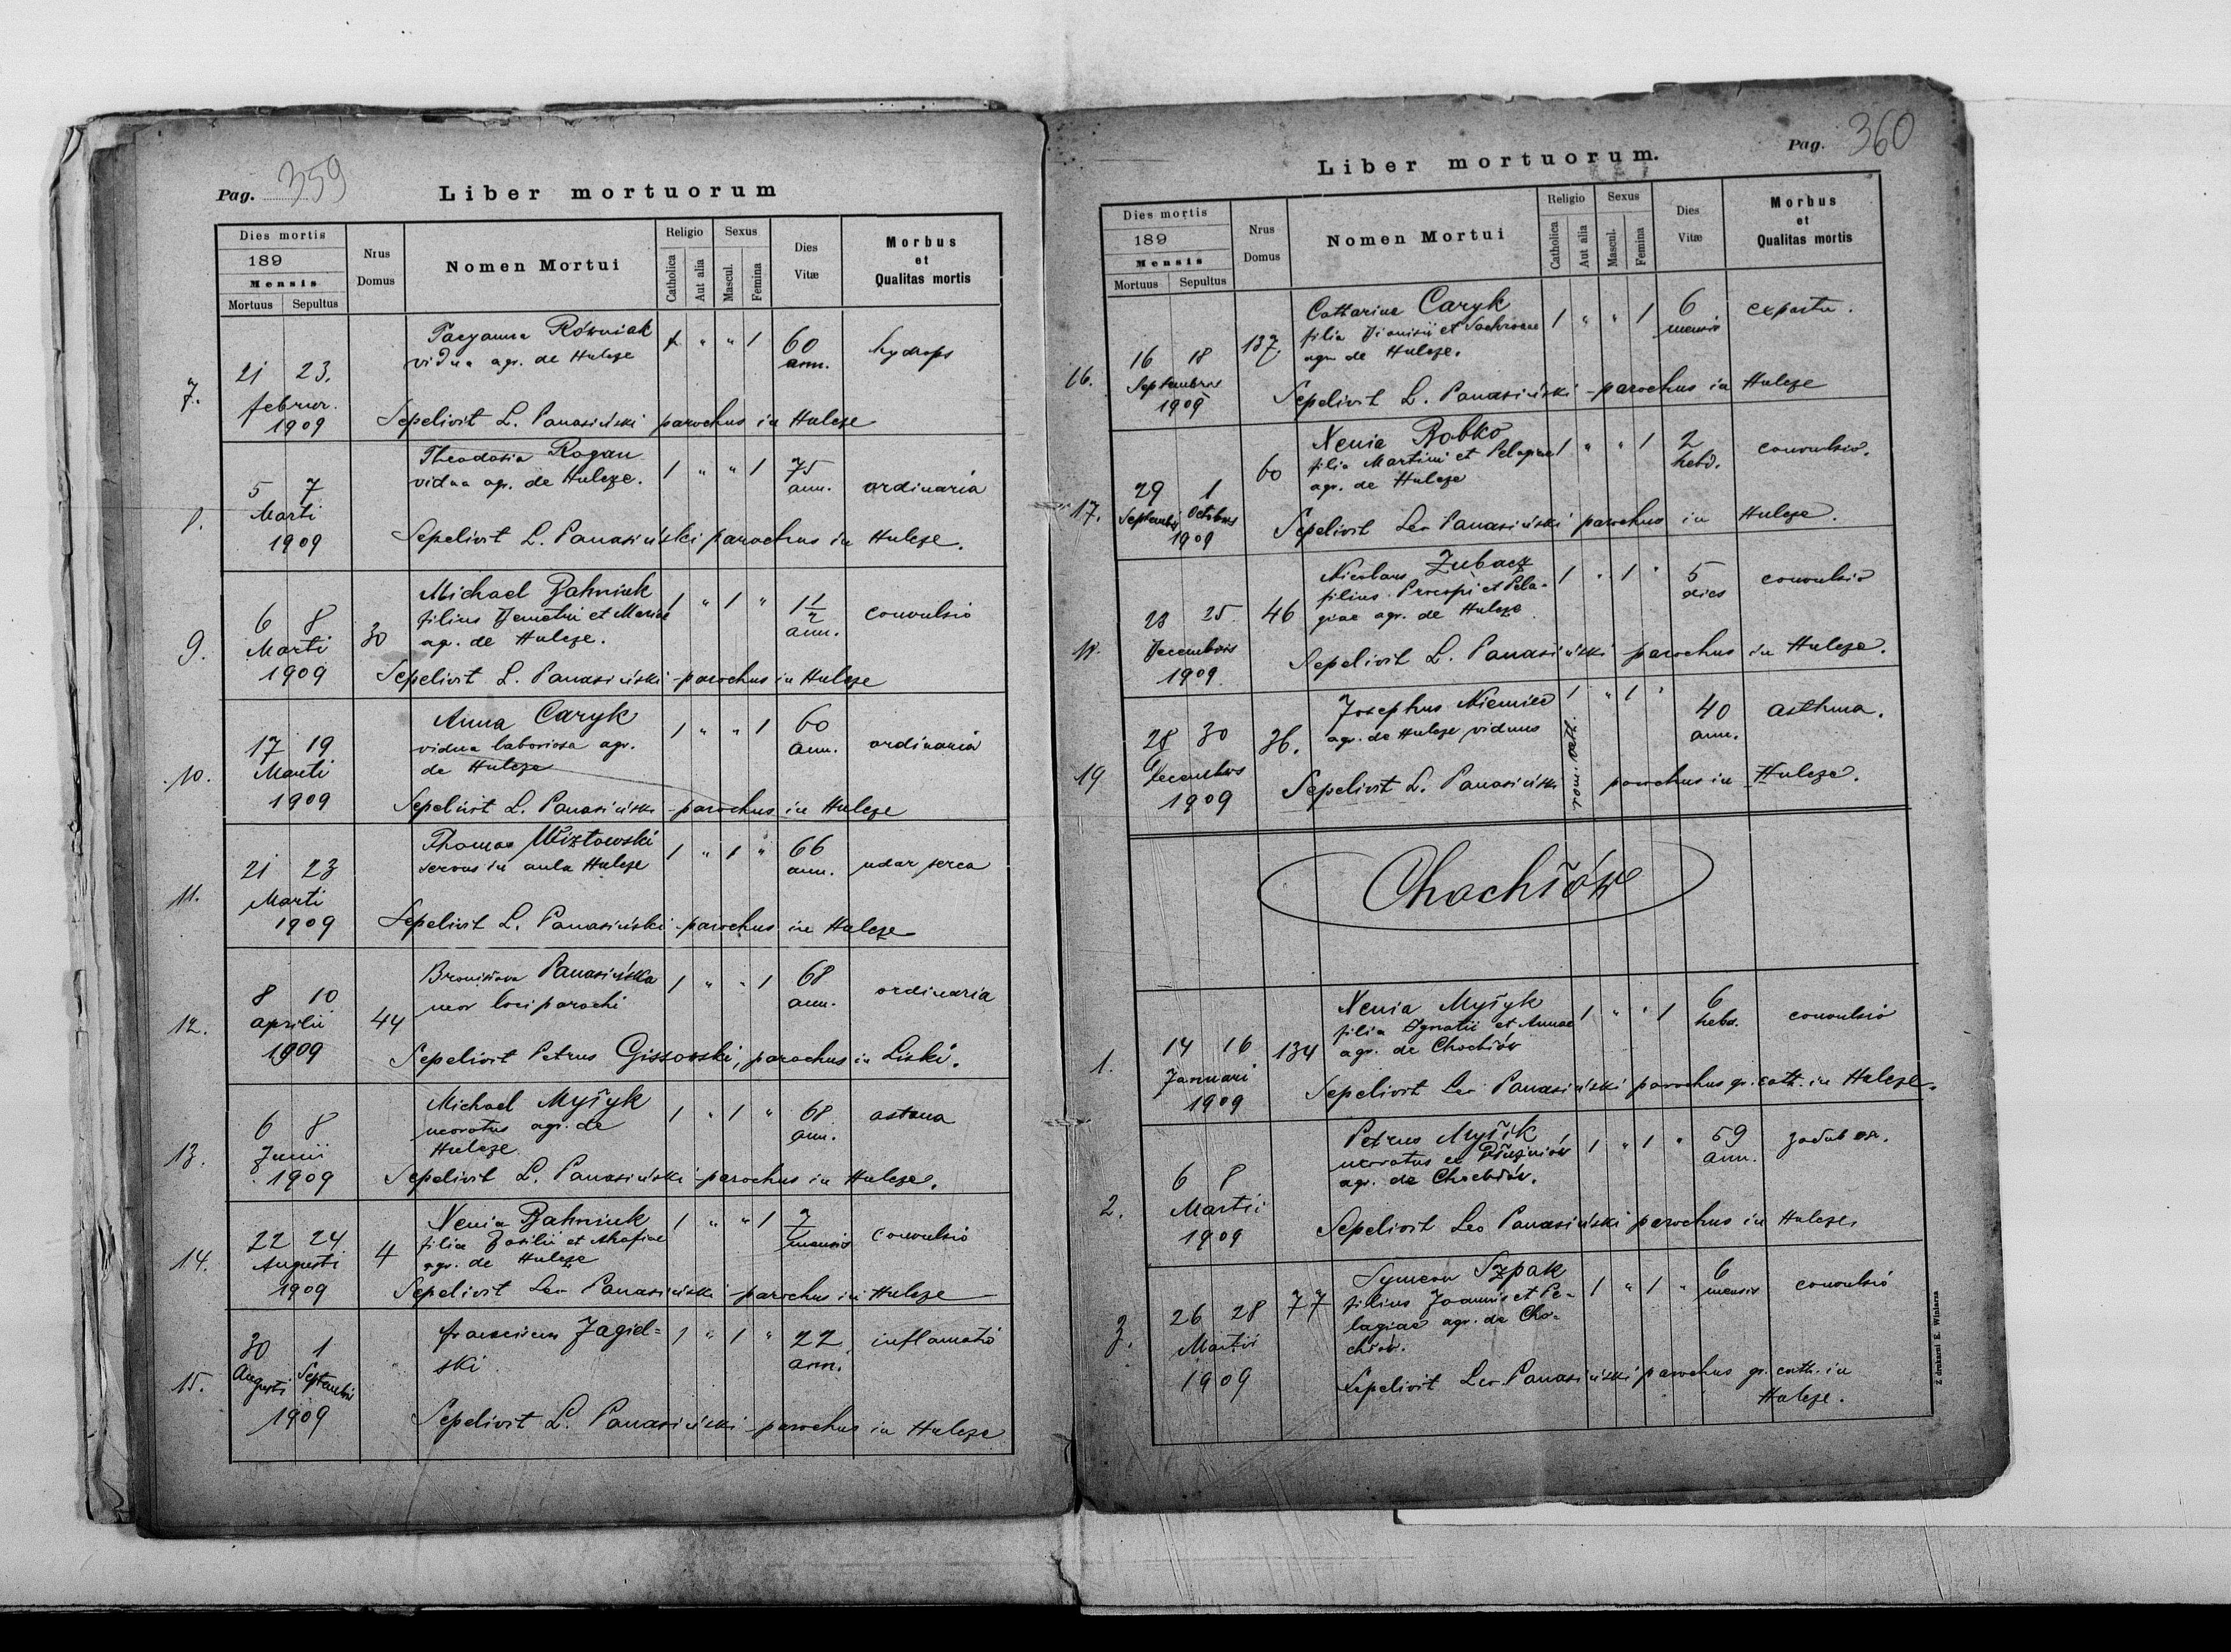 Pag. 359
Liber mortuorum
Dies mortis
189
Mensis
Mortuus Sepultus
Nrus Domus
Nomen Mortui
Religio
Catholica
Aut alia
Sexus
Mascul.
Femina
Dies Vitæ
Morbus et Qualitas mortis
7. 21 23. Paryanna Równiak 1 " " 1 60 hydrops
februar. vidua agr. de Hulcze ann.
1909 Sepelivit L. Panasiński parochus in Hulcze
8. 5 7 Theodosia Rogan 1 " " 1 75 ordinaria
Marti vidua agr. de Hulcze. ann.
1909 Sepelivit L. Panasiński parochus in Hulcze.
9. 6 8 30 Michael Bahniuk 1 " 1 " 1 1/2 convulsio
Marti filius Demetrii et Mariae ann.
agr. de Hulcze.
1909 Sepelivit L. Panasiński parochus in Hulcze
10. 17 19 Anna Caryk 1 " " 1 60 ordinaria
Marti vidua laboriosa agr. ann.
de Hulcze
1909 Sepelivit L. Panasiński parochus in Hulcze
11. 21 23 Thomas 1 " 1 " 66 udar serca
Marti servus in aula Hulcze ann.
1909 Sepelivit L. Panasiński parochus in Hulcze
12. 8 10 44 Bronisława Panasińska 1 " " 1 68 ordinaria
Aprilii uxor loci parochi ann.
1909 Sepelivit Petrus Gissowski, parochus in Liski.
13. 6 8 Michael Mysyk 1 " 1 " 68 astma
Junii uxoratus agr. de ann.
Hulcze
1909 Sepelivit L. Panasiński parochus in Hulcze.
14. 22 24 4 Xenia Bahniuk 1 " " 1 7 convulsio
Augusti filia Basilii et mensis
agr. de Hulcze
1909 Sepelivit Leo Panasiński parochus in Hulcze
15. 30 1 Jagiel= 1 " 1 " 22 inflamatio
Augusti Septembris ski ann.
1909 Sepelivit L. Panasiński parochus in Hulcze
Pag. 360
Liber mortuorum.
Dies mortis
189
Mensis
Mortuus Sepultus
Nrus Domus
Nomen Mortui
Religio
Catholica
Aut alia
Sexus
Mascul.
Femina
Dies Vitæ
Morbus et Qualitas mortis
16. 16 18 137. Catharina Caryk 1 " " 1 6
Septembris filia Dionisii et mensis
agr. de Hulcze.
1909 Sepelivit L. Panasiński parochus in Hulcze
17. 29 1 60 Xenia Bobko 1 " " 1 2 convulsio.
Septembris Octobris filia Martini et Pelagiae hebd.
agr. de Hulcze
1909 Sepelivit Leo Panasiński parochus in Hulcze.
18. 23 25. 46 Nicolaus Zubacz 1 " 1 " 5 convulsio
Decembris filius Procopi et Pela- dies
giae agr. de Hulcze
1909 Sepelivit L. Panasiński parochus in Hulcze.
19 28 30 36. Josephus Niemiec 1 " 1 " 40 asthma.
Decembris agr. de Hulcze viduus rom. cath. ann.
1909 Sepelivit L. Panasiński parochus in Hulcze.
Chochłów
1. 14 16 134 Xenia Mysyk 1 " " 1 6 convulsio
Januari filia Ignatii et Annae hebd.
agr. de Chochłów
1909 Sepelivit Leo Panasiński parochus gr. cath. in Hulcze.
2. 6 8 Petrus Mysik 1 " 1 " 59
Martii uxoratus ex ann.
agr. de Chochłów.
1909 Sepelivit Leo Panasiński parochus in Hulcze.
3. 26 28 77 Symeon Szpak 1 " 1 " 6 convulsio
Martii filius Joannis et Pe- mensis
lagiae agr. de Cho-
chłów.
1909 Sepelivit Leo Panasiński parochus gr. cath. in
Hulcze.
Z drukarni E. Winiarza